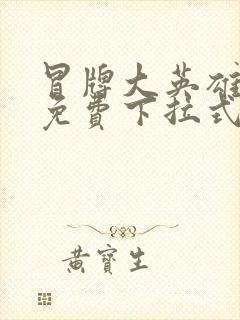 冒牌大英雄
免費下拉式
黃寶生